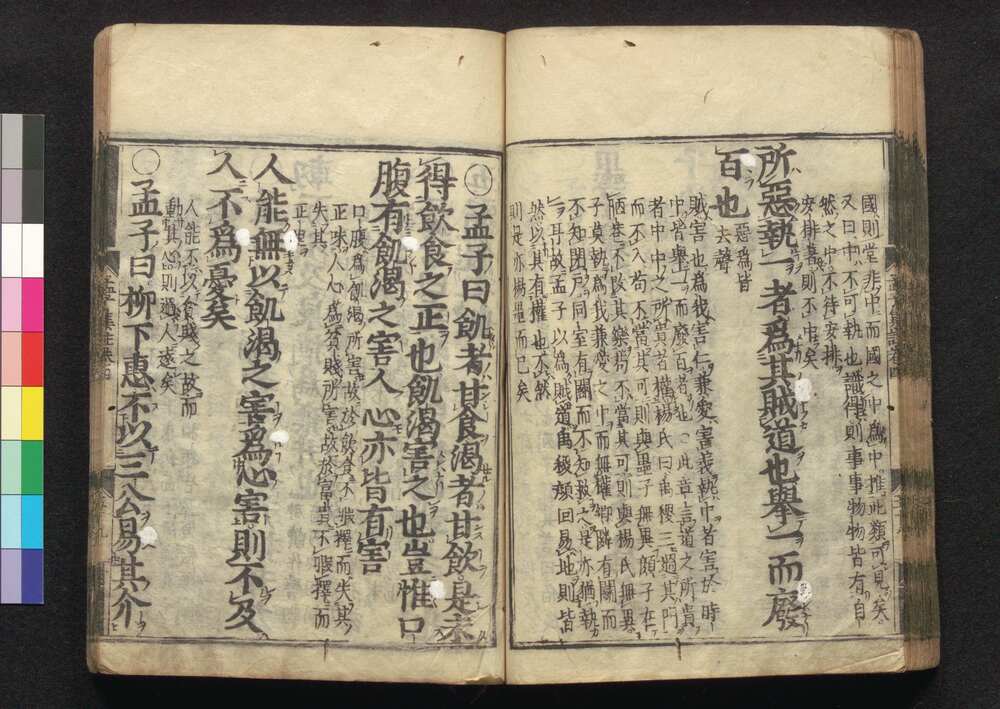 國則堂非中而國之中為中推此類可見矣
又曰中不可執也識得則事事物物皆有自
然之中不待安排
安排着則不中矣
所惡執一者爲其賊道也舉一而廢
百也
惡為皆
去聲
賊害也為我害仁兼愛害義執中者害於時
中皆舉一而廢百者也○此章言道之所貴
者中中之所貴者權楊氏曰禹稷三過其門
而不入苟不當其可則與墨子無異顏子在
陋巷不改其樂苟不當其可則與楊氏無異
子莫執為我兼愛之中而無權鄉隣有鬬而
不知閉戶同室有鬬而不知救之是亦猶執
一耳故孟子以為賊道禹稷顏回易地則皆
然以其有權也不然
則是亦楊墨而已矣
○孟子曰飢者甘食渴者甘飲是未
得飲食之正也飢渴害之也豈惟口
腹有飢渴之害人心亦皆有害
口腹為飢渴所害故於飲食不暇擇而失其
正味人心為貧賤所害故於富貴不暇擇而
失其
正理
人能無以飢渴之害爲心害則不及
人不爲憂矣
人能不以貧賤之故而
動其心則過人遠矣
○孟子曰柳下惠不以三公易其介